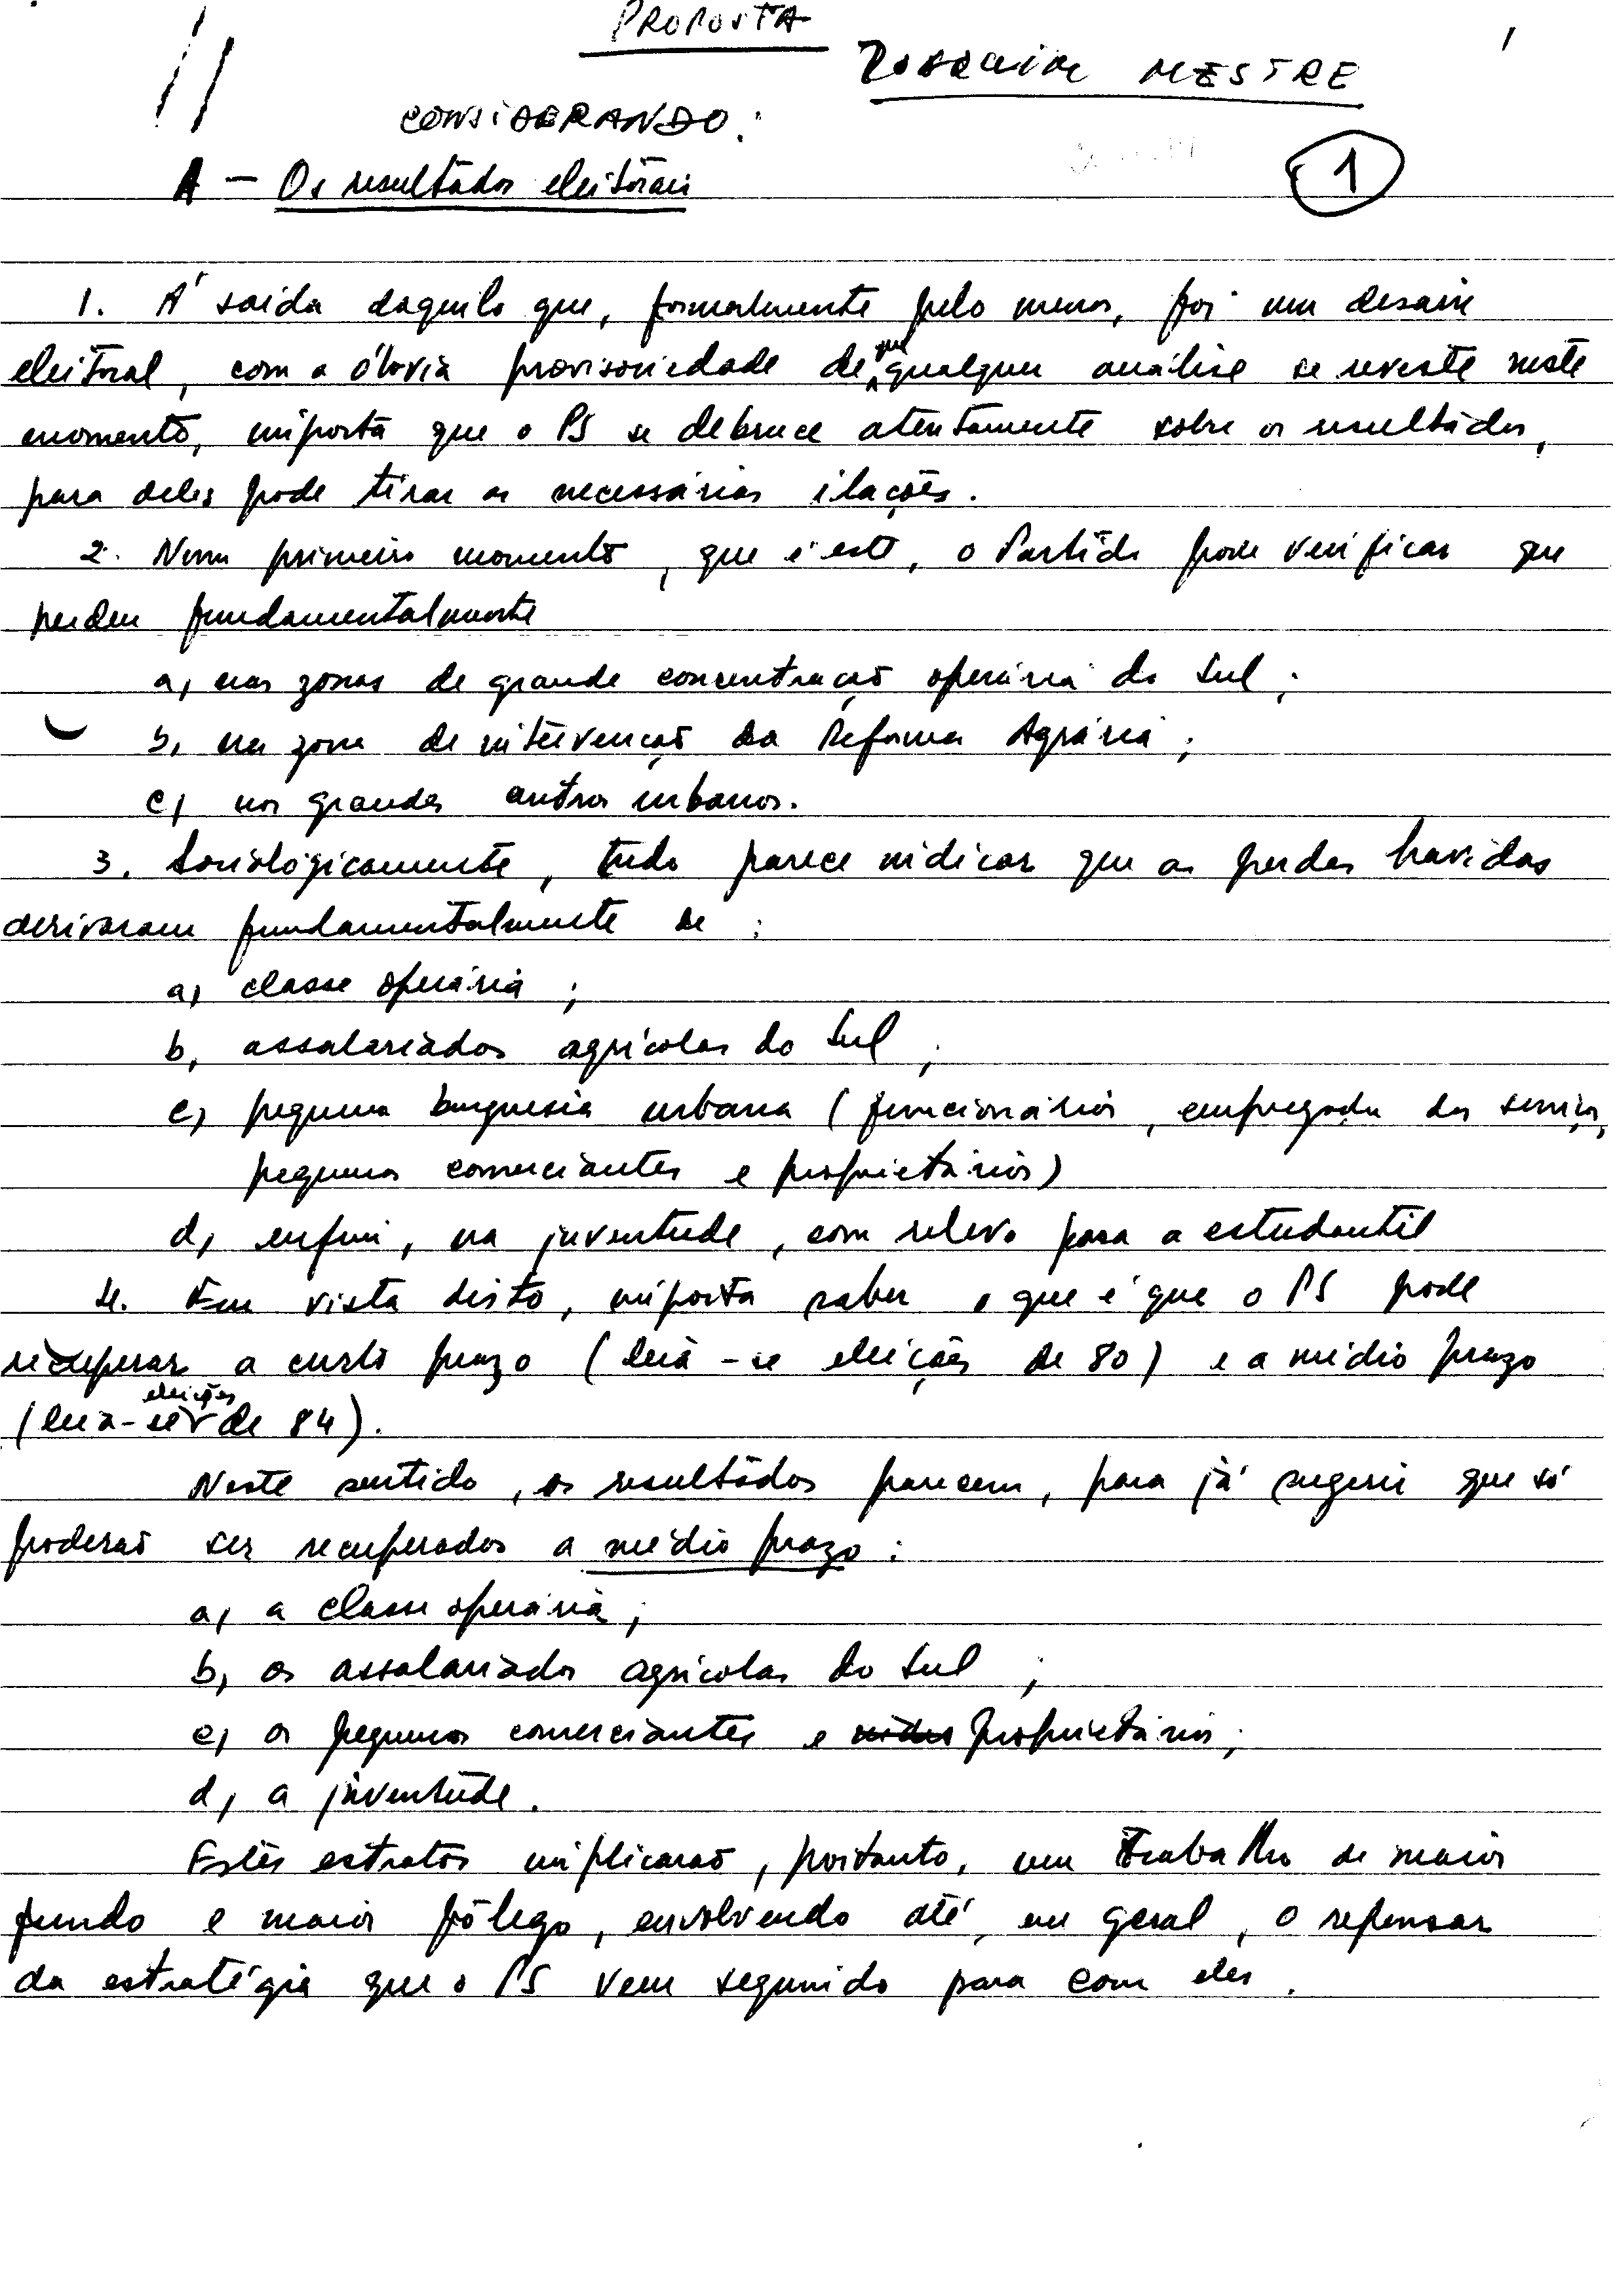 PROPOSTA
1
MESTRE
CONSIDERANDO:
1
A - Os resultados eleitorais
1. À saída daquilo que, formalmente pelo menos, foi um desaire
eleitoral, com a óbvia provisoriedade de que qualquer análise se reveste neste
momento, importa que o PS se debruce atentamente sobre os resultados,
para deles pode tirar as necessárias ilações.
2. Num primeiro momento, que é este, o Partido pode verificar que
perdeu fundamentalmente
a) nas zonas de grande concentração operária do Sul;
b) na zona de intervenção da Reforma Agrária;
c) nos grandes centros urbanos.
3. Sociològicamente, tudo parece indicar que as perdas havidas
derivaram fundamentalmente de:
a) classe operária;
b) assalariados agrícolas do Sul;
c) pequena burguesia urbana (funcionários, empregados dos serviços,
pequenos comerciantes e proprietários)
d) enfim, na juventude, com relevo para a estudantil
4. Em vista disto, importa saber o que é que o PS pode
recuperar a curto prazo (leia-se eleições de 80) e a médio prazo
(leia-se eleições de 84).
Neste sentido, os resultados parecem, para já sugerir que só
poderão ser recuperados a médio prazo:
a) a classe operária;
b) os assalariados agrícolas do Sul;
c) os pequenos comerciantes e proprietários;
d) a juventude.
Estes estratos implicarão, portanto, um trabalho de maior
fundo e maior fôlego, envolvendo até, em geral, o repensar
da estratégia que o PS vem seguindo para com eles.